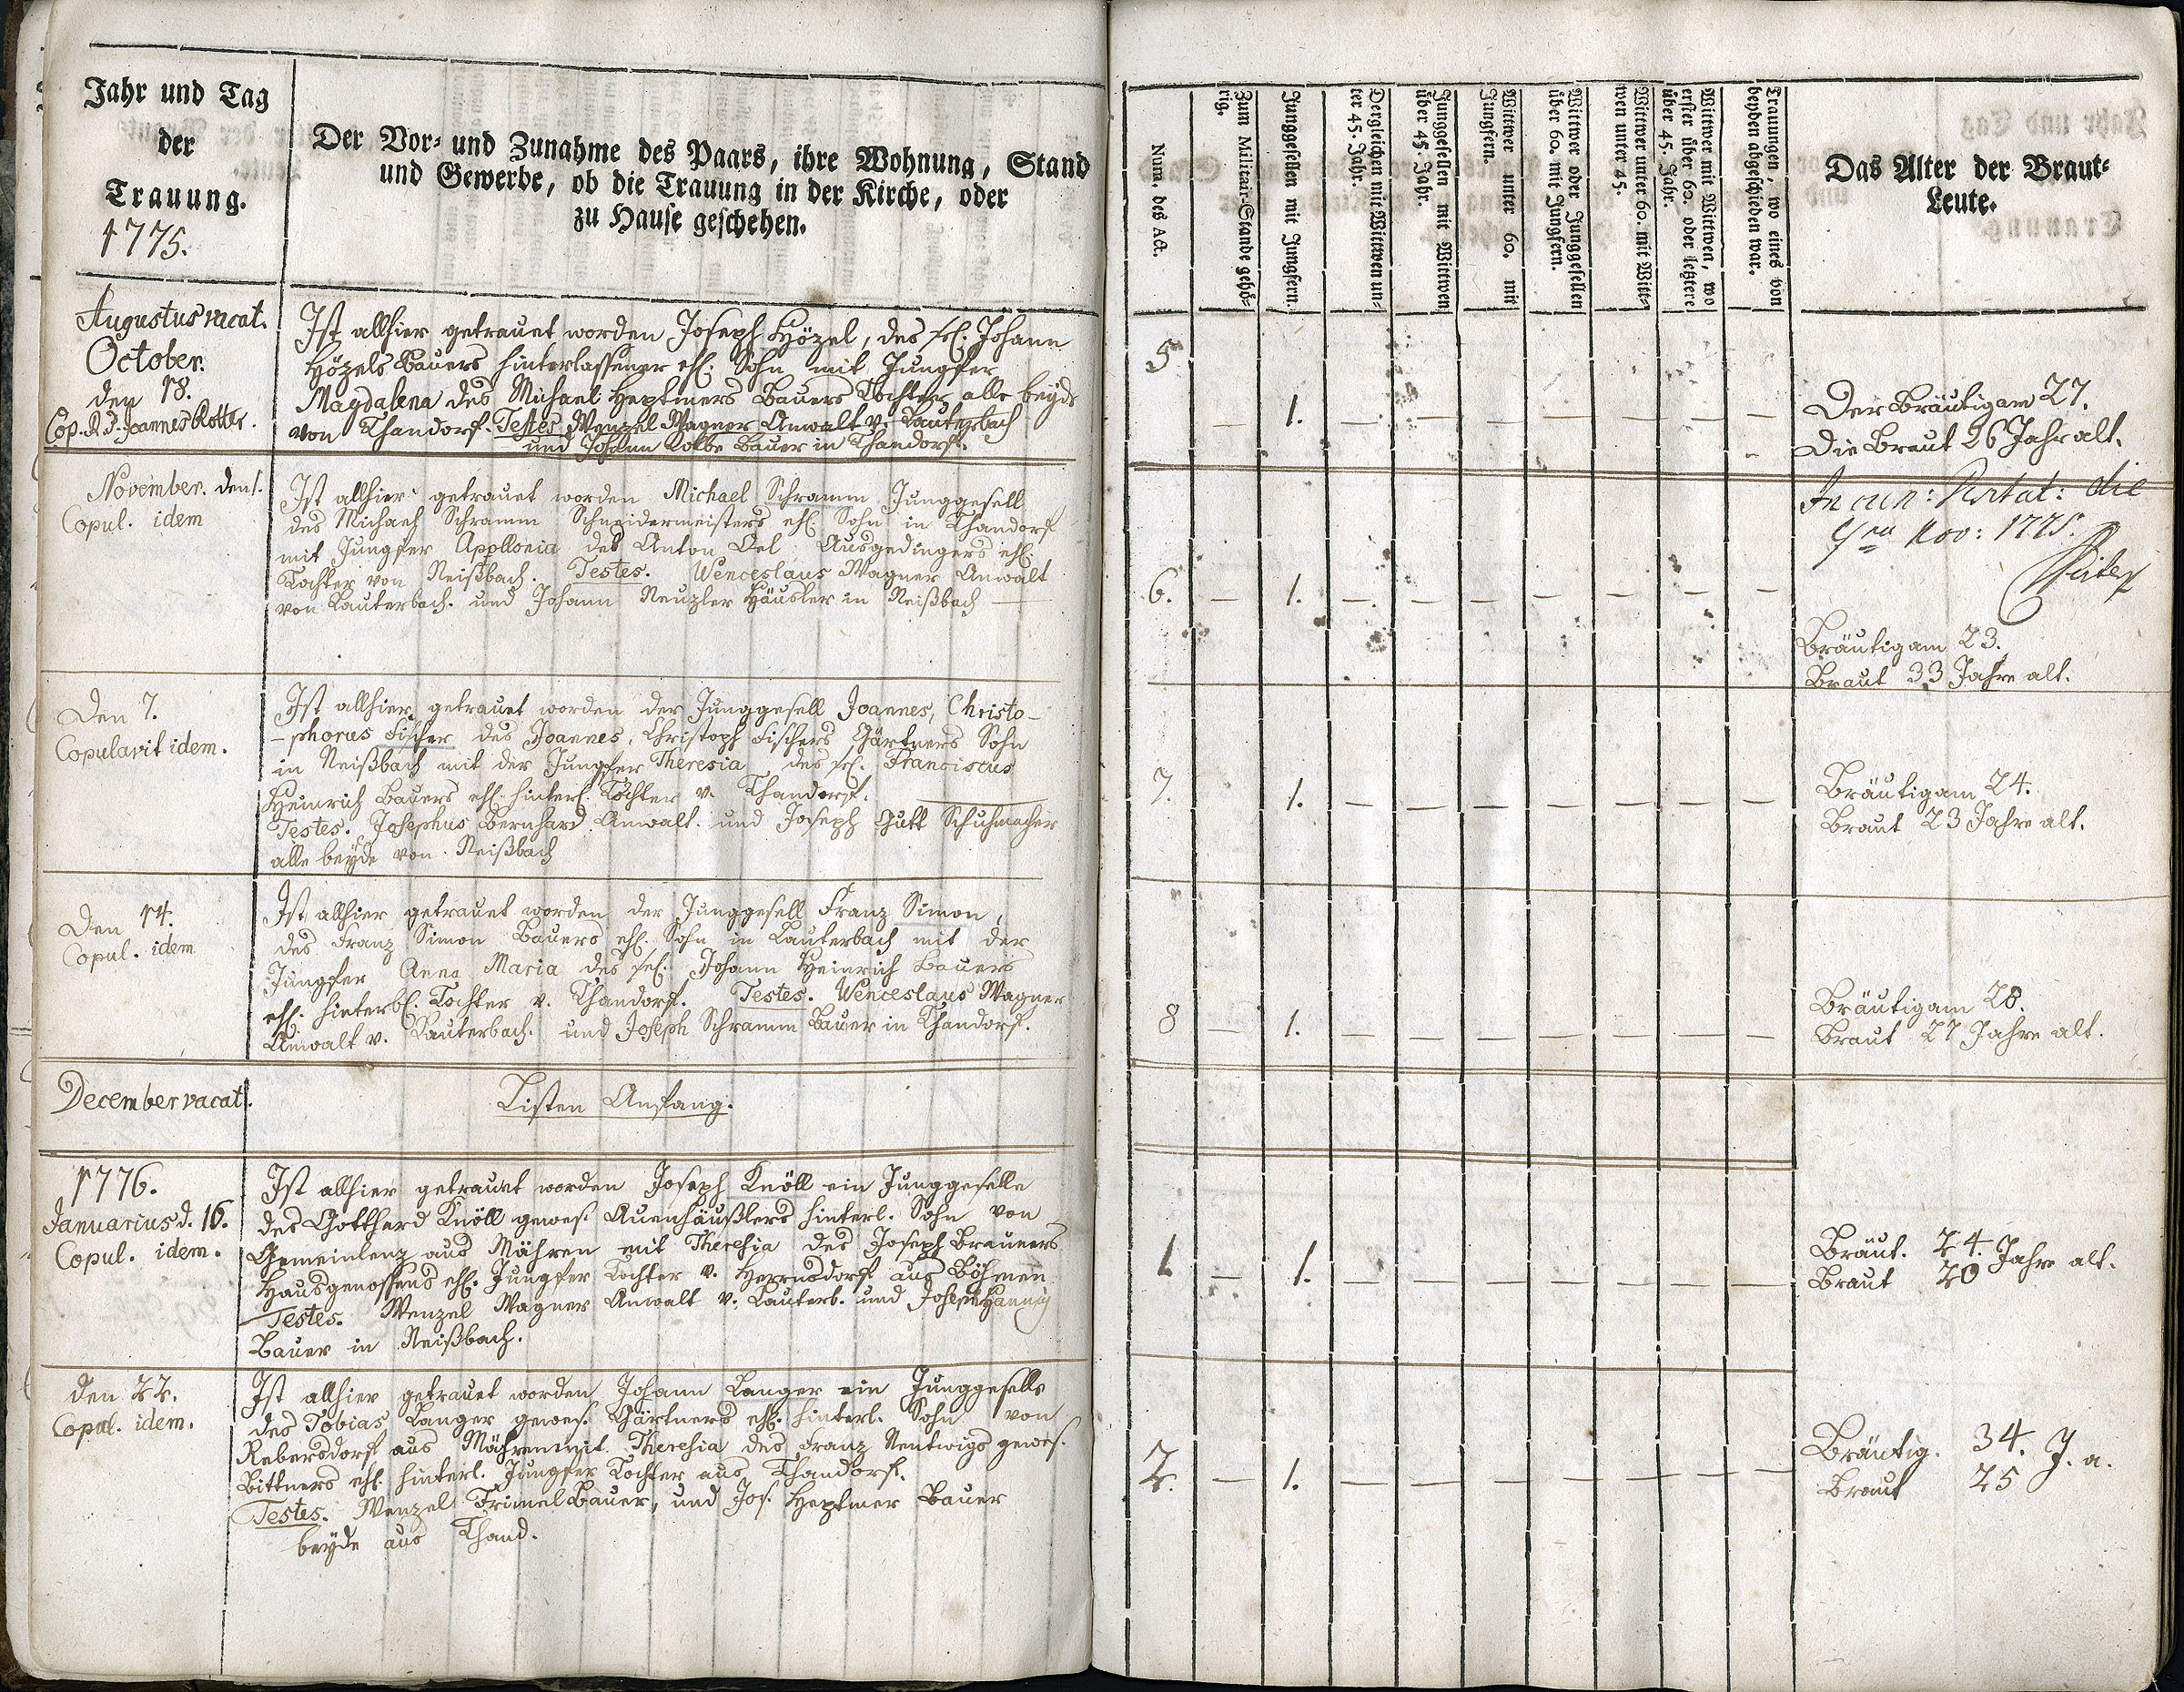 Jahr und Tag
der
Trauung.
1775.
Der Vor- und Zunahme des Paars, ihre Wohnung, Stand
und Gewerbe, ob die Trauung in der Kirche, oder
zu Hause geschehen.
Augustus vacat.
October.
den 18.
Cop. R. D. Joannes Rotter.
Ist allhier getrauet worden Joseph Hözel, des sel. Johann
Hözels Bauers hinterlassener ehl. Sohn mit Jungfer
Magdalena des Michael Heptners Bauers Tochter alle beyde
von Thandorf. Testes Wenzel Wagner Anwalt v. Lauterbach
und Johann Kolbe Bauer in Thandorf.
November. den 1.
Copul. idem
Ist allhier getrauet worden Michael Schramm Junggesell
des Michael Schramm Schneidermeisters ehl. Sohn in Thandorf
mit Jungfer Apollonia des Anton Oel Ausgedingers ehl.
Tochter von Neißbach. Testes. Wenceslaus Wagner Anwalt
von Lauterbach. und Johann Neuzler Häusler in Neißbach
Den 7.
Copulavit idem.
Ist allhier getrauet worden der Junggesell Joannes, Christo-
-phorus Fischer des Joannes, Christoph Fischers Gärtners Sohn
in Neißbach mit der Jungfer Theresia des sel. Franciscus
Heinrich Bauers ehl. hinterl. Tochter v. Thandorf.
Testes. Josephus Bernhard Anwalt. und Joseph Gutt Schuhmacher
alle beyde von Neißbach
Den 14.
Copul. idem
Ist allhier getrauet worden der Junggesell Franz Simon,
des Franz Simon Bauers ehl. Sohn in Lauterbach mit der
Jungfer Anna Maria des sel. Johann Heinrich Bauers
ehl. hinterl. Tochter v. Thandorf. Testes. Wenceslaus Wagner
Anwalt v. Lauterbach. und Joseph Schramm Bauer in Thandorf.
December vacat.
Listen Anfang.
1776.
Januarius d. 16.
Copul. idem.
Ist allhier getrauet worden Joseph Knöll ein Junggeselle
des Gotthard Knöll gewes. Auenhäußlers hinterl. Sohn von
Gemeinlenz aus Mähren mit Theresia des Joseph Brauners
Hausgenossens ehl. Jungfer Tochter v. Herrnsdorf aus Böhmen
Testes. Wenzel Wagner Anwalt v. Lauterb. und Joseph Hannig
Bauer in Neißbach.
den 22.
Copul. idem.
Ist allhier getrauet worden Johann Langer ein Junggeselle
des Tobias Langer gewes. Gärtners ehl. hinterl. Sohn von
Rebersdorf aus Mähren mit Theresia des Franz Nentwigs gewes.
Bittners ehl. hinterl. Jungfer Tochter aus Thandorf.
Testes. Wenzel Frimel Bauer, und Jos. Heptner Bauer
beyde aus Thand.
Num. des Act.
Zum Militair-Stande gehö-
rig.
Junggesellen mit Jungfern.
Dergleichen mit Wittwen un-
ter 45. Jahr.
Junggesellen mit Wittwen
über 45. Jahr.
Wittwer unter 60. mit
Jungfern.
Wittwer oder Junggesellen
über 60. mit Jungfern.
Wittwer unter 60. mit Witt-
wen unter 45.
Wittwer mit Wittwen, wo
erster über 60. oder letztere
über 45. Jahr.
Trauungen, wo eines von
beyden abgeschieden war.
Das Alter der Braut-
Leute.
5 — 1. — — — — — — —
Der Bräutigam 27.
Die Braut 26 Jahr alt.
die
Nov: 1775.
6. — 1. — — — — — — —
Bräutigam 23.
Braut 33 Jahre alt.
7. 1. — — — — — — —
Bräutigam 24.
Braut 23 Jahre alt.
8 — 1. — — — — — — —
Bräutigam 28.
Braut 27 Jahre alt.
1 — 1. — — — — — — —
Bräut. 24. Jahre alt.
Braut 20
2. — 1. — — — — — — —
Bräutig. 34. J. a.
Braut 25